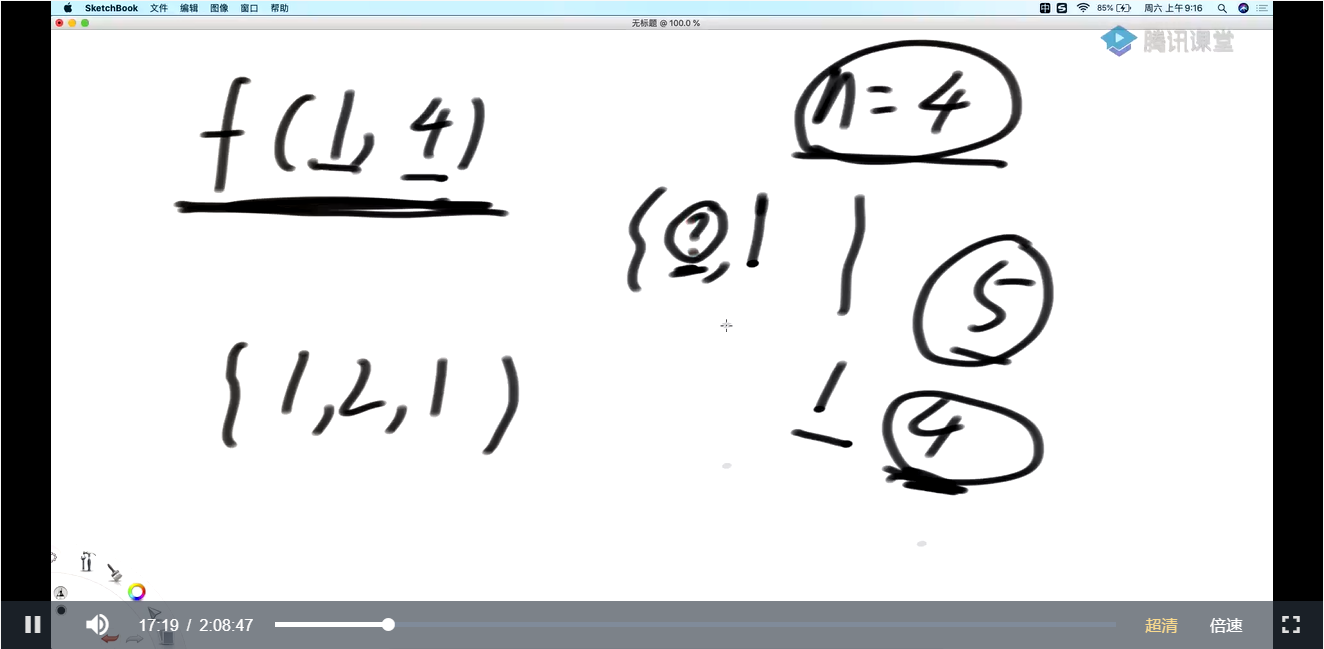 SketchBook 文件 编辑 图像 窗口 帮助 85% 周六 上午9:16
无标题 @ 100.0 %
腾讯课堂
f(1, 4)
n=4
{?, 1 }
5
{1,2,1}
1 4
17:19 / 2:08:47 超清 倍速